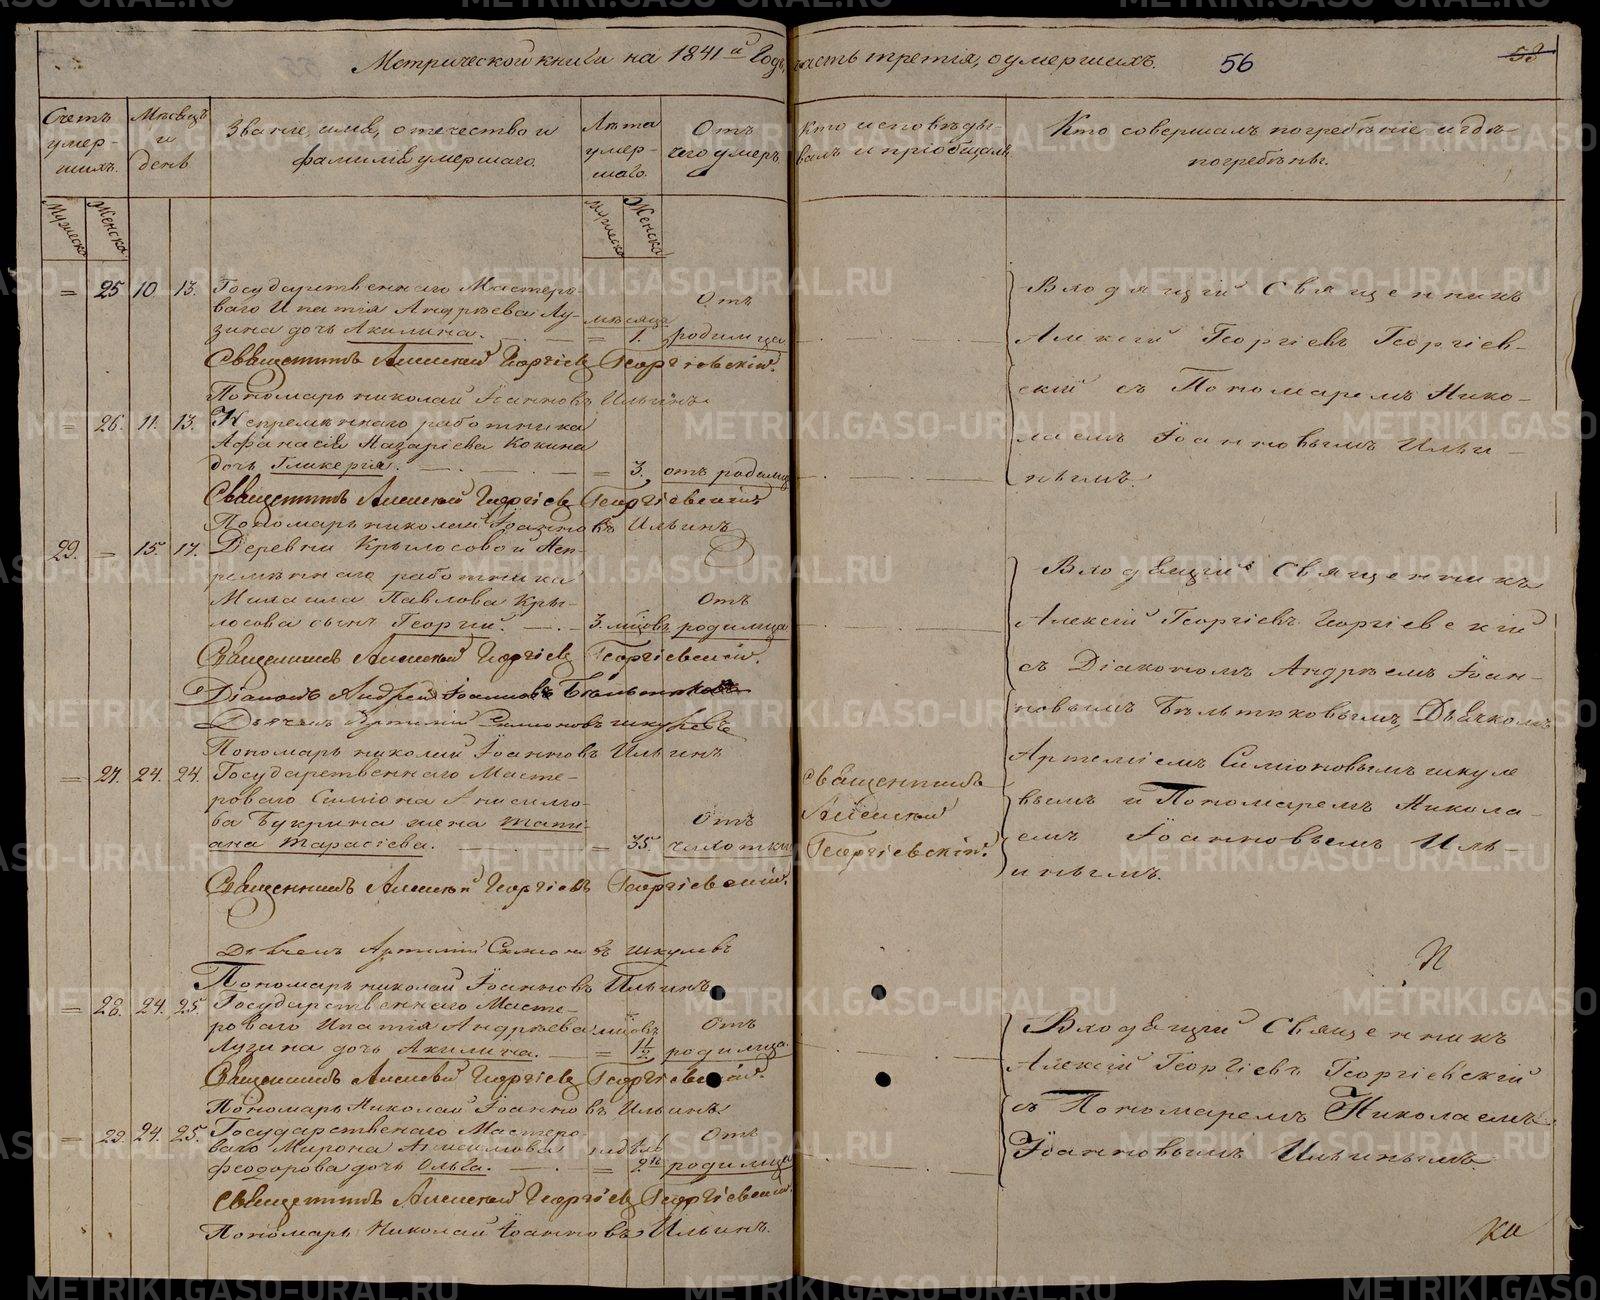 Метрической книги на 1841й Годъ, часть третія, о умершихъ.
56
58
Счетъ умер-шихъ.
Мѣсяцъ и день
Званіе, имя, отечество и фамилія умершаго.
Лѣта умер-шаго.
Отъ чего умеръ
Кто исповѣды-валъ и пріобщалъ
Кто совершалъ погребѣніе и гдѣ погребѣны.
Мужеска
Женска
Мужеска
Женска
= 25 10 13. Государственнаго Мастеро-
ваго Ипатія Андрѣева Лу-
зина дочь Акилина. = мѣсяца 1. Отъ родимца
Священникъ Алексей Георгіевъ Георгіевскій.
Пономарь николай Іоанновъ Ильинъ
Входящій Священникъ
Алексій Георгіевъ Георгіев-
скій съ Пономаремъ Нико-
лаемъ Іоанновымъ Ильи-
нымъ
= 26. 11. 13. Непремѣннаго работника
Афанасія Назаріева Кокина
дочь Гликерія. = 3. отъ родимца
Священникъ Алексей Георгіевъ Георгіевскій
Пономарь николай Іоанновъ Ильинъ
29. = 15. 17. Деревни Крылосовой Неп-
ремѣннаго работника
Михаила Павлова Кры-
лосова сынъ Георгій. 3. мѣсцвъ Отъ родимца
Священникъ Алексей Георгіевъ Георгіевскій.
Діаконъ Андрей Іоанновъ Бѣльтиковъ
Дьячекъ Артемій Симіоновъ шкулевъ
Пономарь николай Іоанновъ Ильинъ
Входящій Священникъ
Алексій Георгіевъ Георгіевскій
съ Діакономъ Андрѣемъ Іоан-
новымъ Бѣльтиковымъ, Дьячкомъ
Артеміемъ Симіоновымъ шкуле
вымъ и Пономаремъ Никола-
емъ Іоанновымъ Иль-
инымъ.
= 27. 24. 24. Государственнаго Масте-
роваго Симіона Анисимо-
ва Букрина жена Тати-
ана Тарасіева. = 35. Отъ чахотки
Священникъ
Алексей
Георгіевскій.
Священникъ Алексей Георгіевъ Георгіевскій.
Дьячекъ Артемій Симіоновъ шкулевъ
Пономарь николай Іоанновъ Ильинъ
= 28. 24. 25. Государственнаго Масте-
роваго Ипатія Андрѣева
Лузина дочь Акилина. = мѣсцвъ 1½ Отъ родимца.
Священникъ Алексей Георгіевъ Георгіевскій.
Пономарь Николай Іоанновъ Ильинъ
Входящій Священникъ
Алексій Георгіевъ Георгіевскій
съ Пономаремъ Николаемъ
Іоанновымъ Ильинымъ
= 29. 24. 25. Государственаго Мастеро
ваго Мирона Анисимова
Феодорова дочь Ольга. = недѣль 2хъ Отъ родимца
Священникъ Алексей Георгіевъ Георгіевскій.
Пономарь Николай Іоанновъ Ильинъ.
ки
METRIKI.GASO-URAL.RU